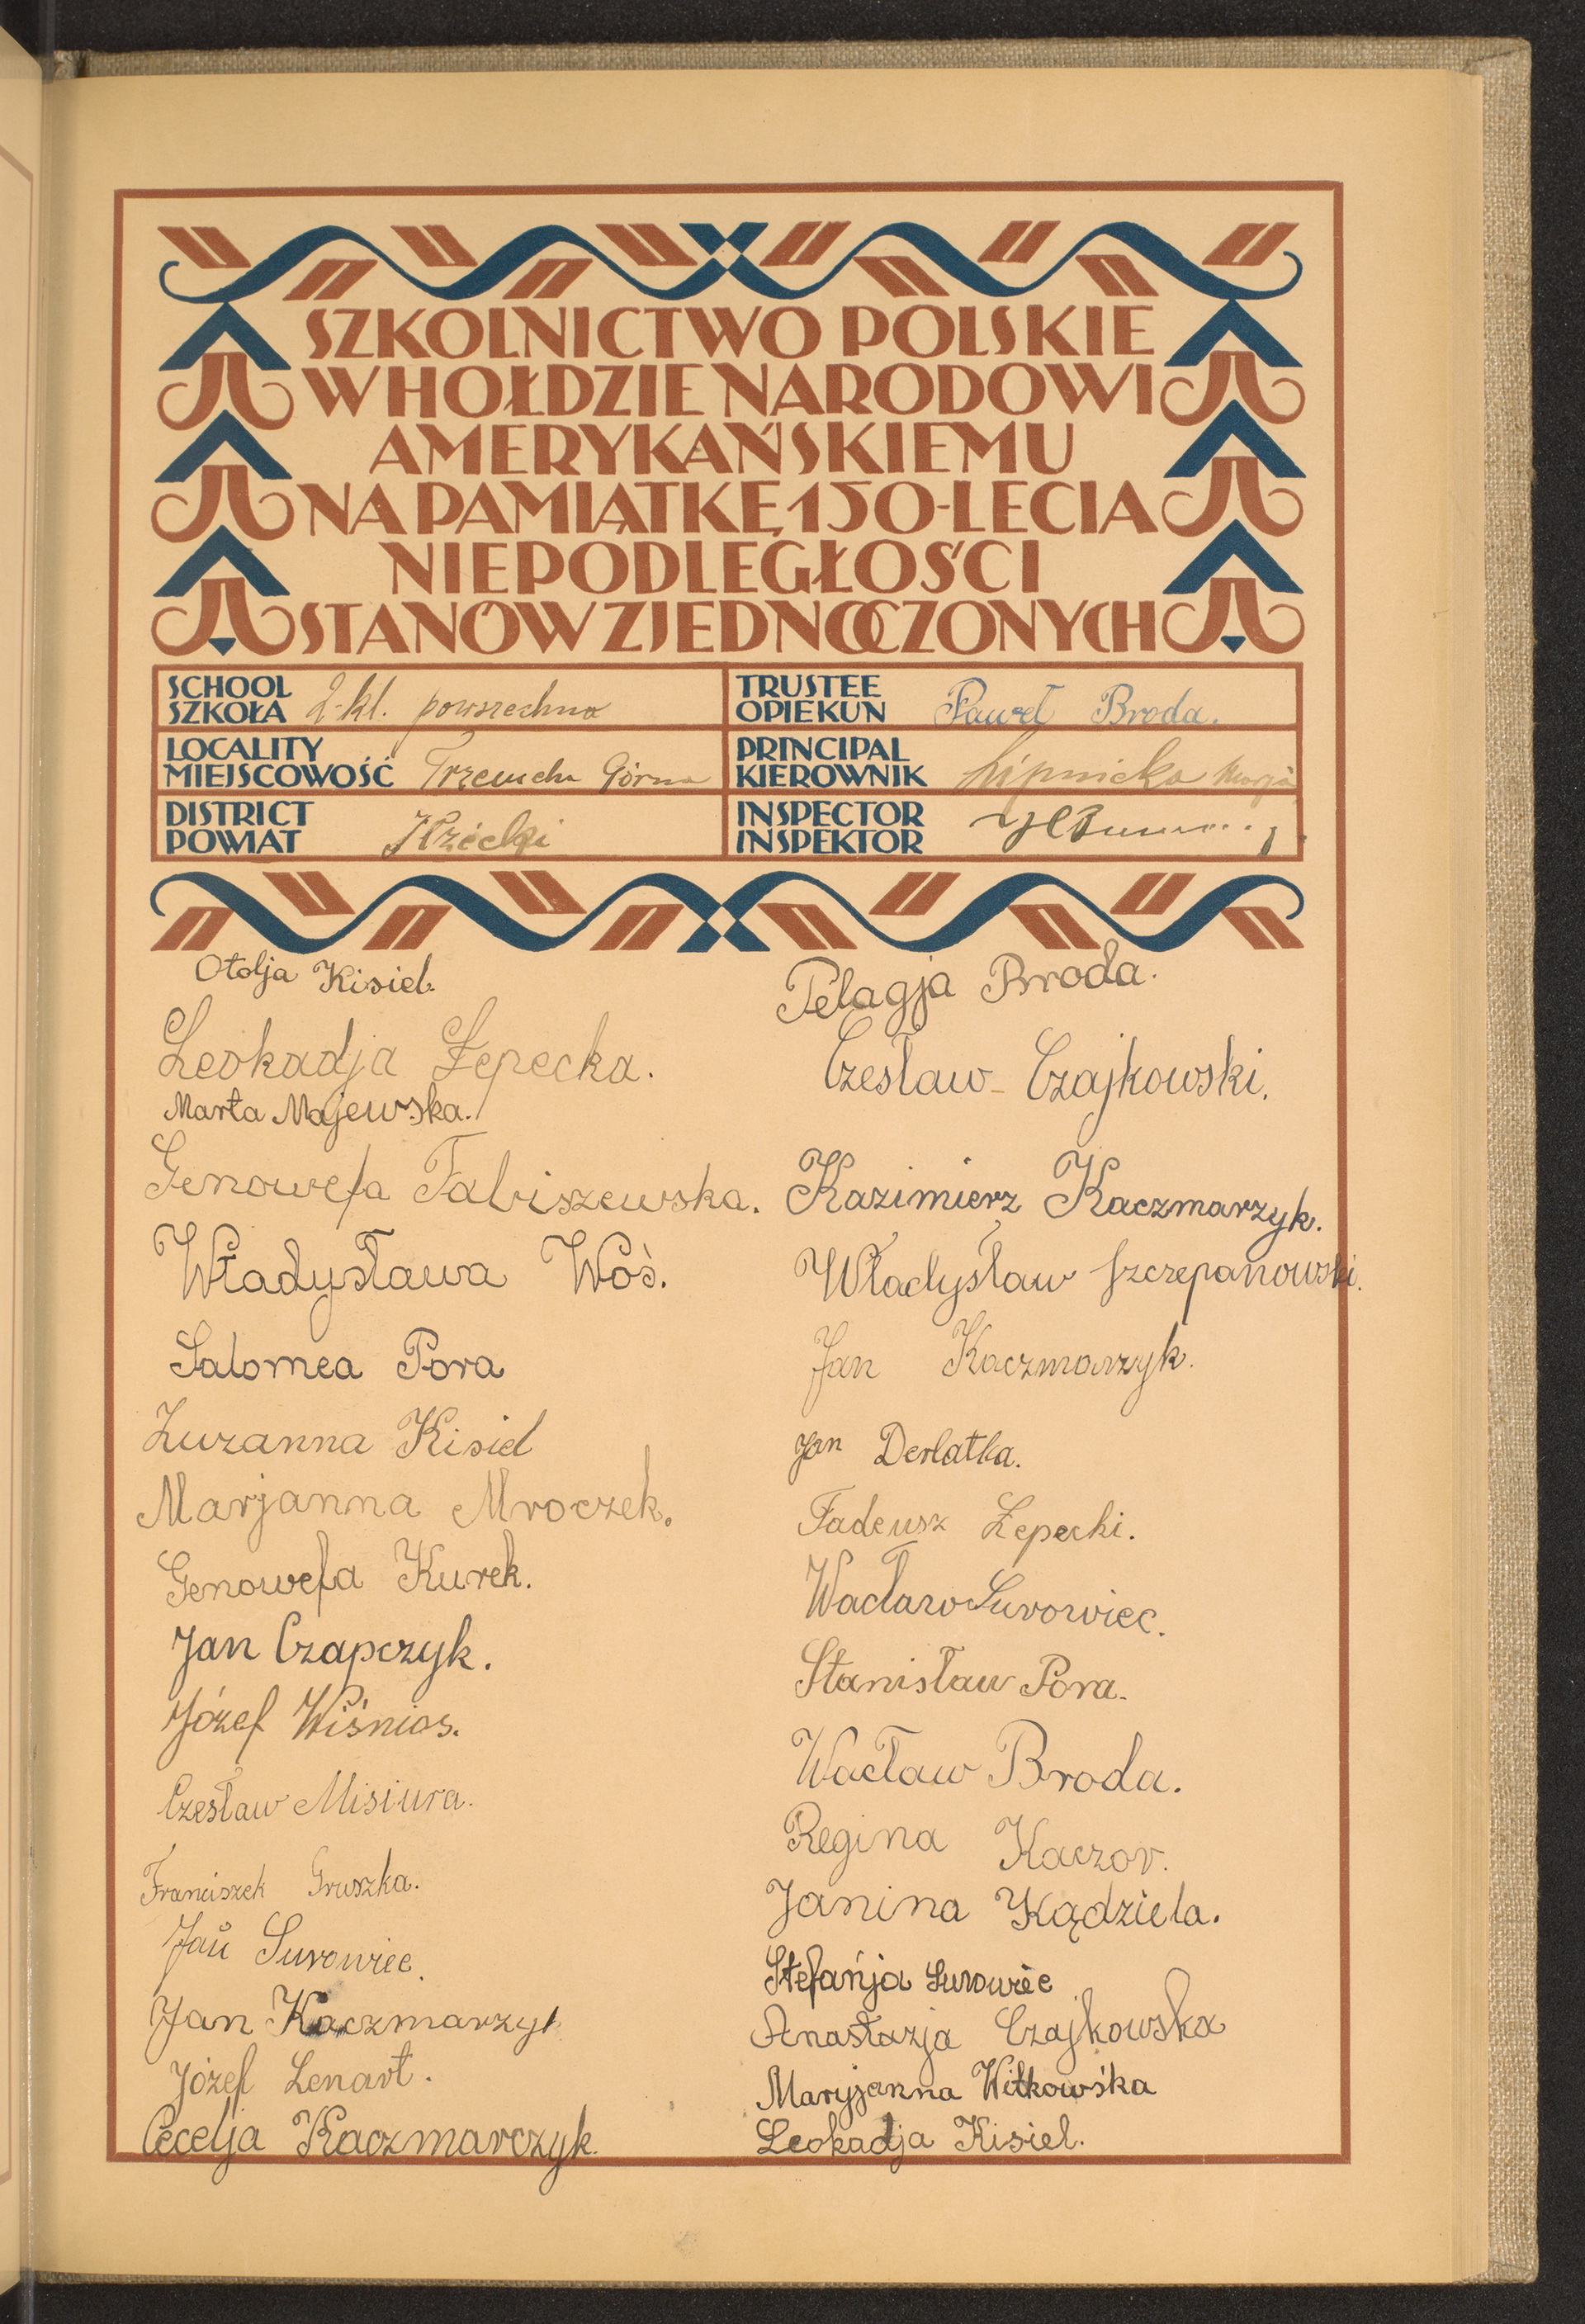 SZKOLNICTWO POLSKIE
W HOŁDZIE NARODOWI
AMERYKAŃSKIEMU
NA PAMIĄTKĘ 150-LECIA
NIEPODLEGŁOŚCI
STANÓW ZJEDNOCZONYCH
SCHOOL
SZKOŁA 2-kl. powszechna
TRUSTEE
OPIEKUN Paweł Broda.
LOCALITY
MIEJSCOWOŚĆ Górna
PRINCIPAL
KIEROWNIK Lipnicka Marja
DISTRICT
POWIAT Iłżecki
INSPECTOR
INSPEKTOR
Otolja Kisiel.
Leokadja Łepecka.
Marta Majewska.
Genowefa Fabiszewska.
Władysława Woś.
Salomea Pora
Zuzanna Kisiel
Marjanna Mroczek.
Genowefa Kurek.
Jan Czapczyk.
Józef Wiśnios.
Czesław Misiura.
Franciszek Gruszka.
Jan Surowiec.
Jan Kaczmarzyk
Józef Lenart.
Cecelja Kaczmarczyk.
Pelagja Broda.
Czesław Czajkowski.
Kazimierz Kaczmarzyk.
Władysław Szczepanowski.
Jan Kaczmarzyk.
Jan Derlatka.
Tadeusz Łepecki.
Wacław Surowiec.
Stanisław Pora.
Wacław Broda.
Regina Kaczor.
Janina Kądziela.
Stefańja Surowiec
Anastazja Czajkowska
Maryjanna Witkowśka
Leokadja Kisiel.